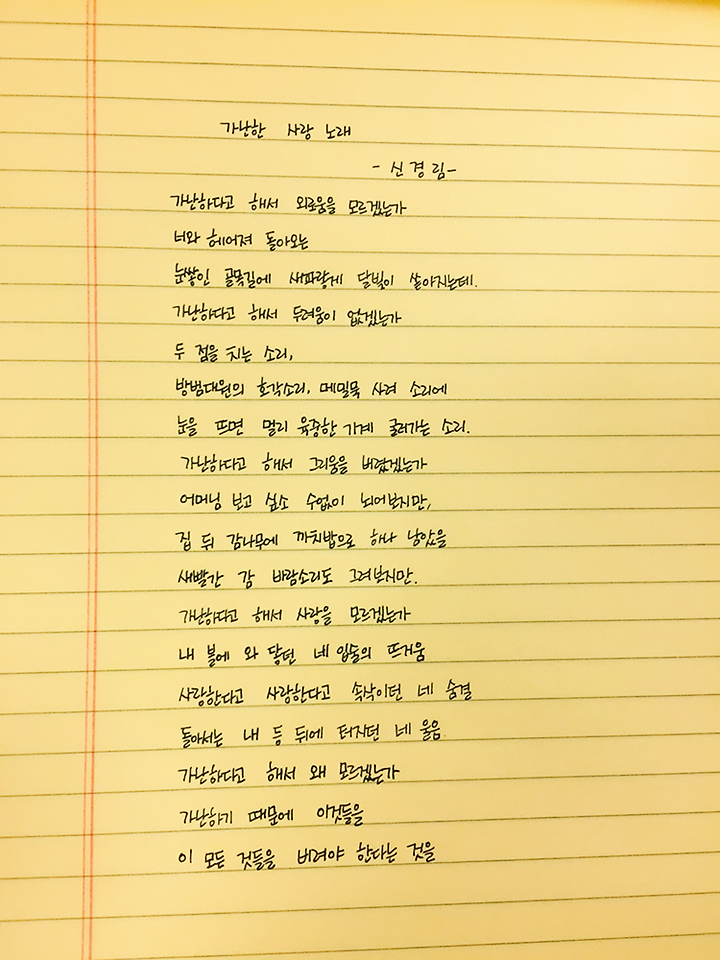 가난한 사랑 노래
- 신경림-
가난하다고 해서 외로움을 모르겠는가
너와 헤어져 돌아오는
눈쌓인 골목길에 새파랗게 달빛이 쏟아지는데.
가난하다고 해서 두려움이 없겠는가
두 점을 치는 소리,
방범대원의 호각소리, 메밀묵 사려 소리에
눈을 뜨면 멀리 육중한 기계 굴러가는 소리.
가난하다고 해서 그리움을 버렸겠는가
어머님 보고 싶소 수없이 뇌어보지만,
집 뒤 감나무에 까치밥으로 하나 남았을
새빨간 감 바람소리도 그려보지만.
가난하다고 해서 사랑을 모르겠는가
내 볼에 와 닿던 네 입술의 뜨거움
사랑한다고 사랑한다고 속삭이던 네 숨결
돌아서는 내 등 뒤에 터지던 네 울음
가난하다고 해서 왜 모르겠는가
가난하기 때문에 이것들을
이 모든 것들을 버려야 한다는 것을